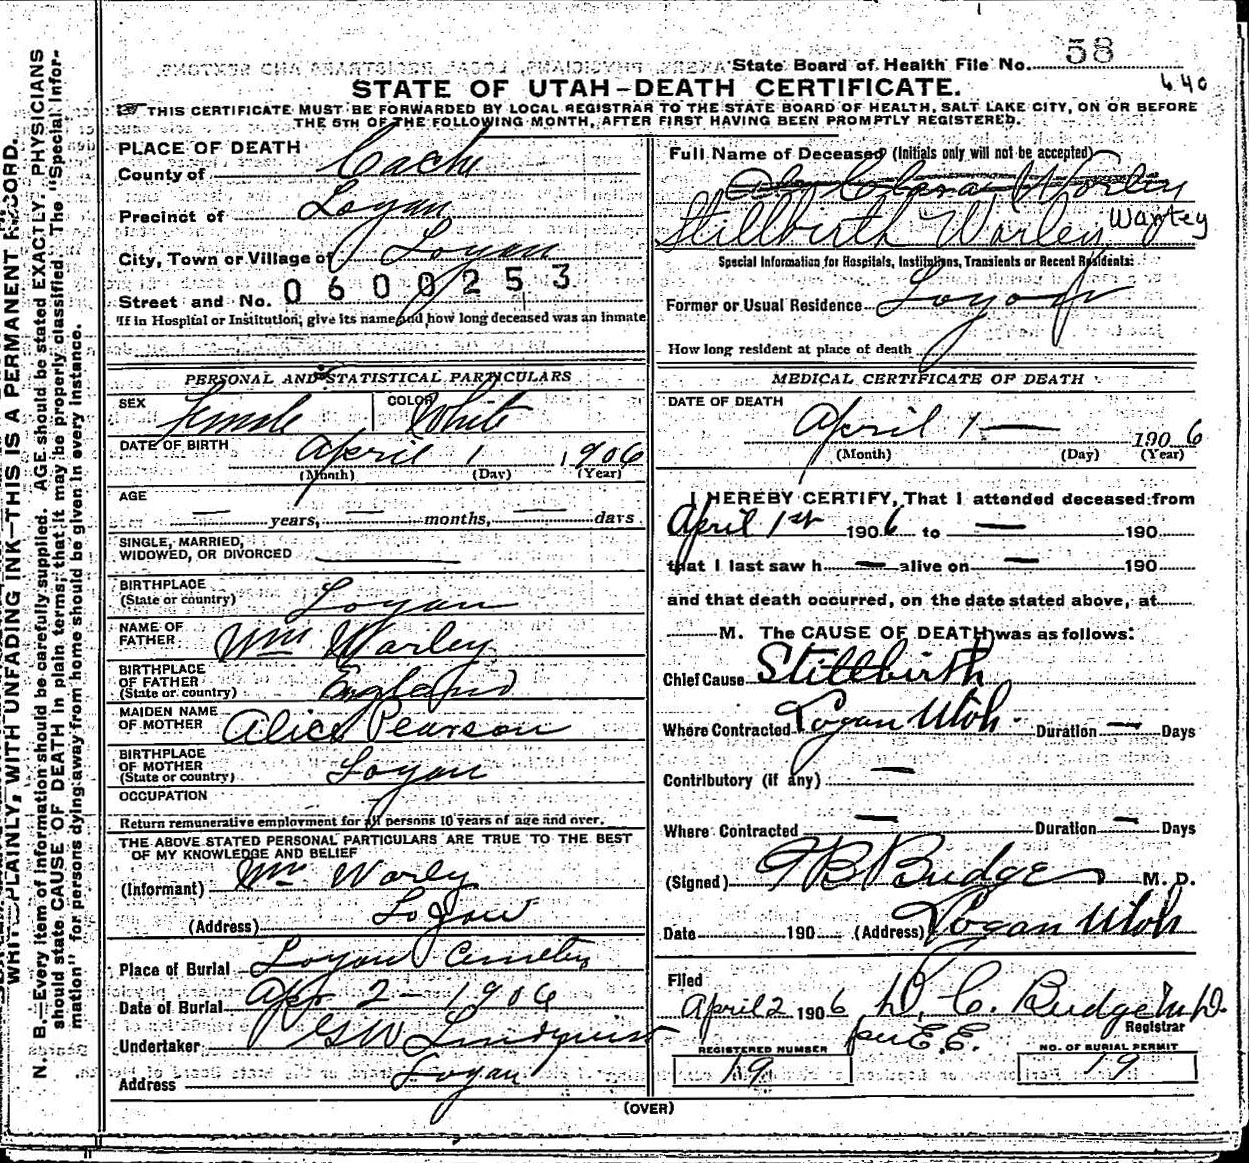 State Board of Health File No. 58
640
STATE OF UTAH-DEATH CERTIFICATE.
THIS CERTIFICATE MUST BE FORWARDED BY LOCAL REGISTRAR TO THE STATE BOARD OF HEALTH, SALT LAKE CITY, ON OR BEFORE
THE 5TH OF THE FOLLOWING MONTH, AFTER FIRST HAVING BEEN PROMPTLY REGISTERED.
PLACE OF DEATH
County of Cache
Precinct of Logan
City, Town or Village of Logan
Street and No. 0600253
If in Hospital or Institution, give its name and how long deceased was an inmate
PERSONAL AND STATISTICAL PARTICULARS
SEX Female COLOR White
DATE OF BIRTH April 1 1906
(Month) (Day) (Year)
AGE
— years, — months, — days
SINGLE, MARRIED,
WIDOWED, OR DIVORCED —
BIRTHPLACE
(State or country) Logan
NAME OF
FATHER Wm Warley
BIRTHPLACE
OF FATHER
(State or country) England
MAIDEN NAME
OF MOTHER Alice Pearson
BIRTHPLACE
OF MOTHER
(State or country) Logan
OCCUPATION
Return remunerative employment for all persons 10 years of age and over.
THE ABOVE STATED PERSONAL PARTICULARS ARE TRUE TO THE BEST
OF MY KNOWLEDGE AND BELIEF
(Informant) Wm Warly
(Address) Logan
Place of Burial Logan Cemetery
Date of Burial Apr 2 - 1906
Undertaker GW Lindquist
Address Logan
Full Name of Deceased (Initials only will not be accepted)
Worley
Stillbirth Warley Wartey
Special Information for Hospitals, Institutions, Transients or Recent Residents:
Former or Usual Residence Logan
How long resident at place of death
MEDICAL CERTIFICATE OF DEATH
DATE OF DEATH
April 1 — 1906
(Month) (Day) (Year)
I HEREBY CERTIFY, That I attended deceased from
April 1st 1906 to — 190
that I last saw h — alive on — 190
and that death occurred, on the date stated above, at
M. The CAUSE OF DEATH was as follows:
Chief Cause Stillbirth
Where Contracted Logan Utah. Duration — Days
Contributory (if any) —
Where Contracted — Duration — Days
(Signed) TB Budge M. D.
Date 190 (Address) Logan Utah
Filed
April 2 1906 D. C. Budge M.D.
Registrar
per E.E.
REGISTERED NUMBER
19
NO. OF BURIAL PERMIT
19
(OVER)
WRITE PLAINLY, WITH UNFADING INK—THIS IS A PERMANENT RECORD.
N. B.—Every item of information should be carefully supplied. AGE should be stated EXACTLY. PHYSICIANS
should state CAUSE OF DEATH in plain terms, that it may be properly classified. The "Special Infor-
mation" for persons dying away from home should be given in every instance.